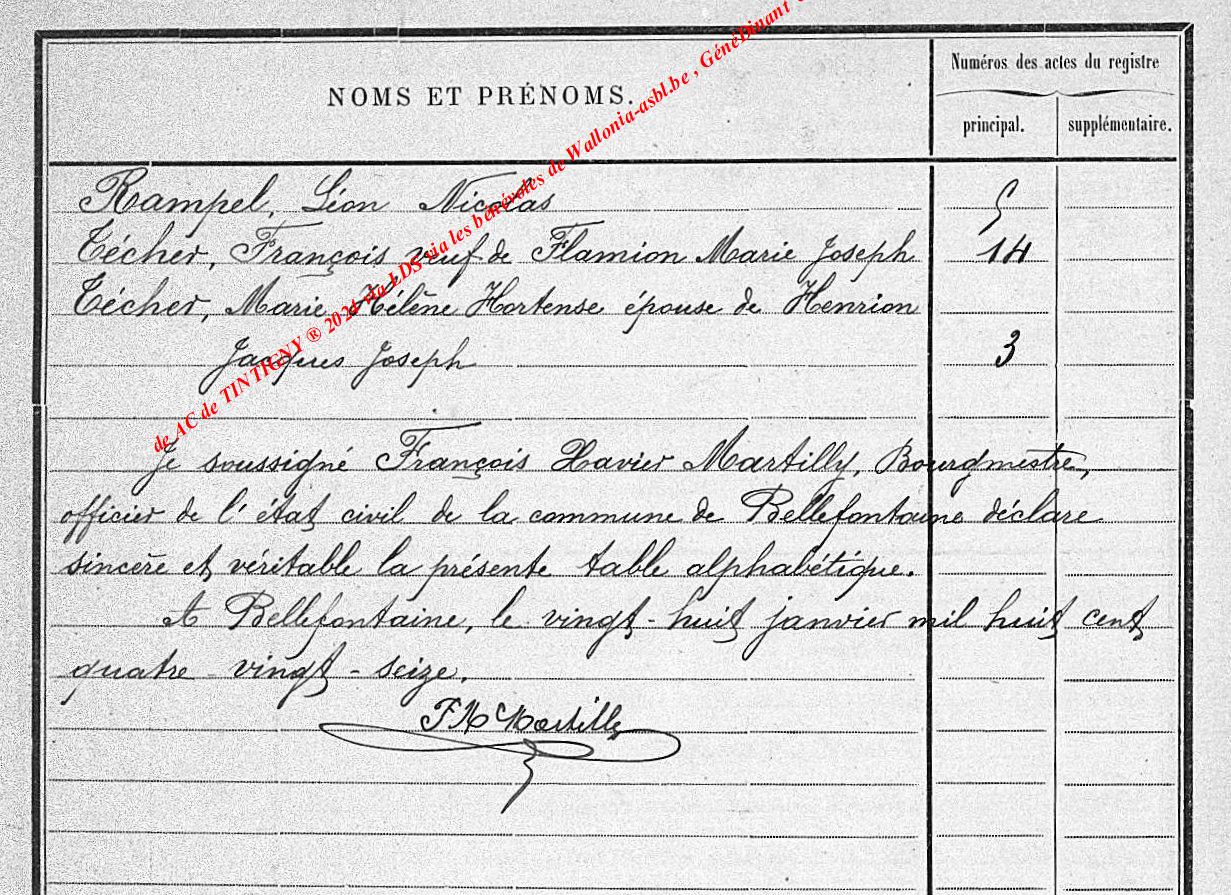 NOMS ET PRÉNOMS.
Numéros des actes du registre
principal. supplémentaire.
Rampel, Léon Nicolas 5
Técher, François veuf de Flamion Marie Joseph 14
Técher, Marie Hélène Hortense épouse de Henrion
Jacques Joseph 3
Je soussigné François Xavier Martilly, Bourgmestre,
officier de l'état civil de la commune de Bellefontaine déclare
sincère et véritable la présente table alphabétique.
A Bellefontaine, le vingt-huit janvier mil huit cent
quatre-vingt-seize.
Martilly
de AC de TINTIGNY ® 2024 via LDS via les bénévoles de Wallonia-asbl.be, GénéDinant